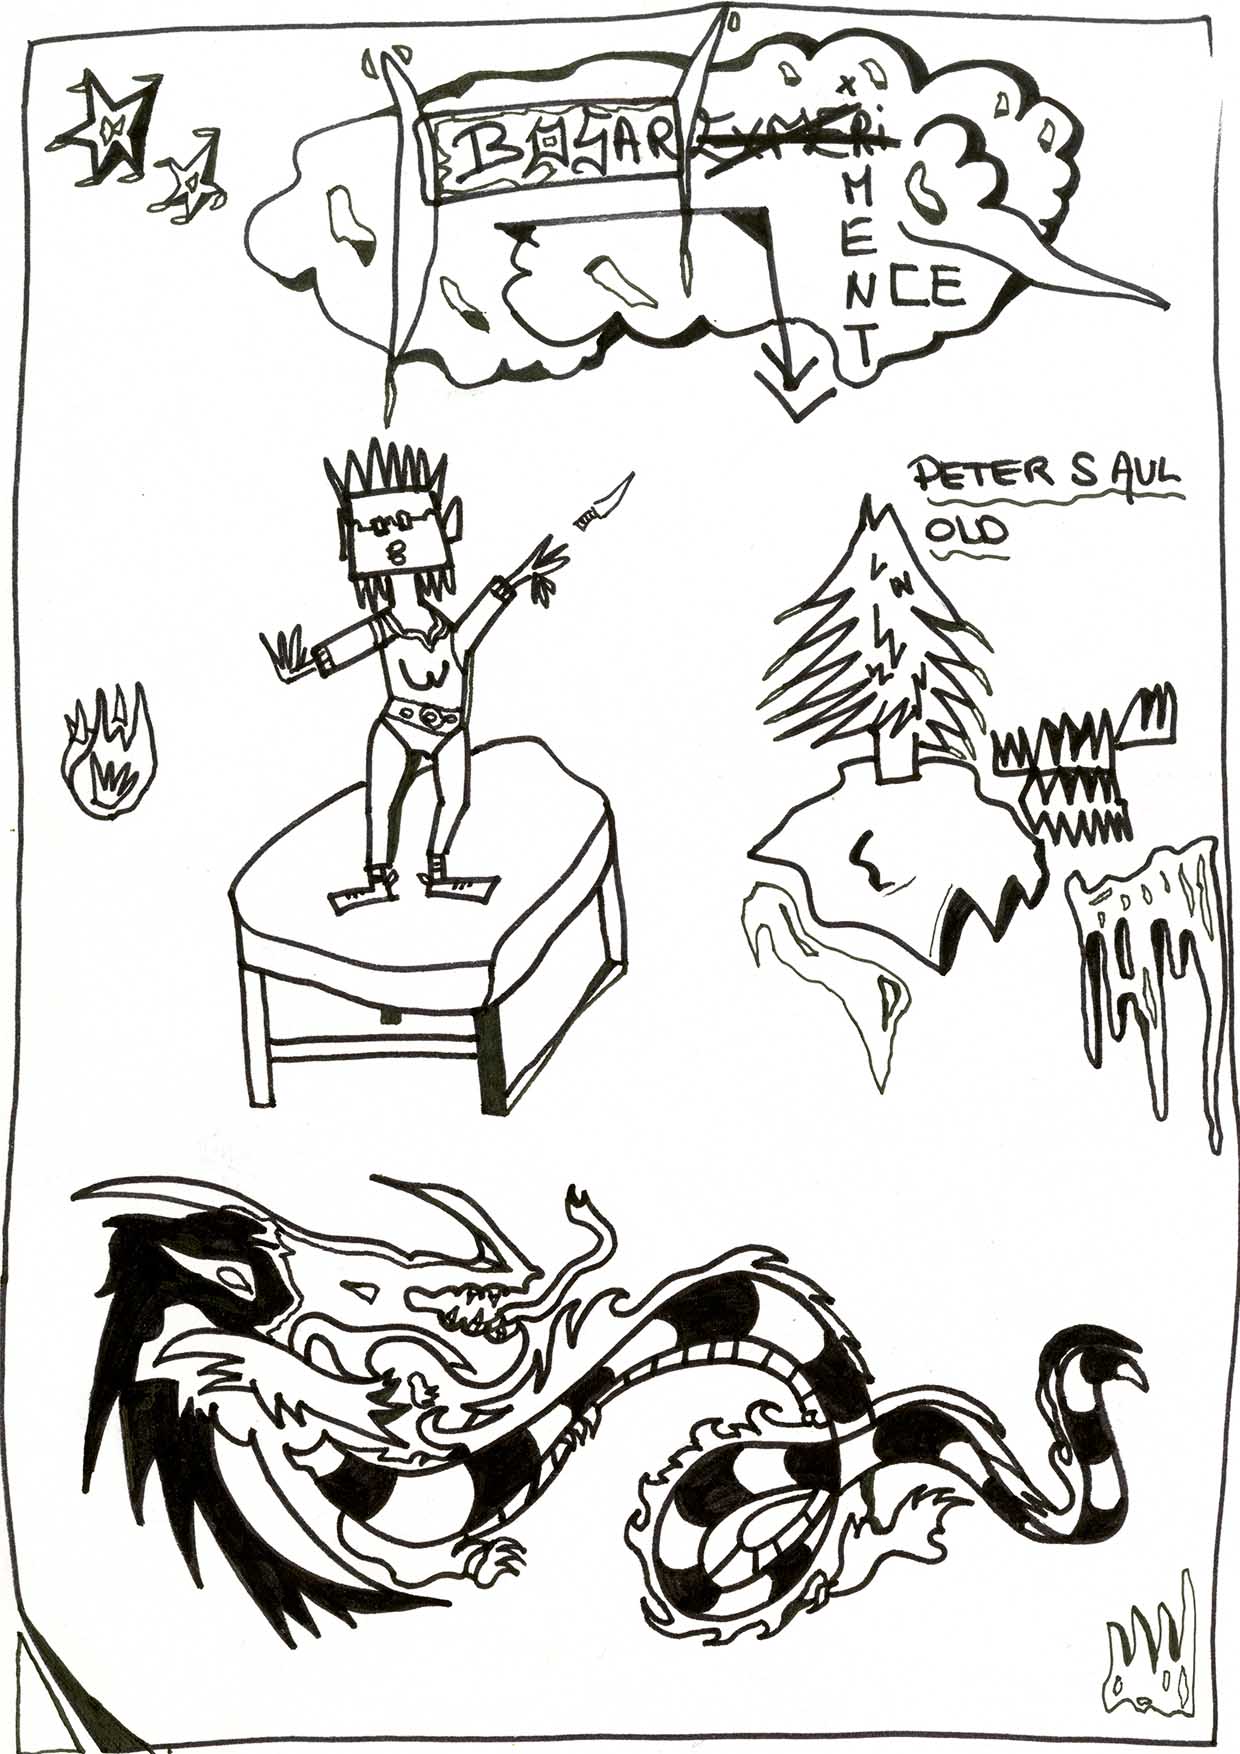 BOGAR EXMERi
X
M
E
N CE
T
PETER SAUL
OLD